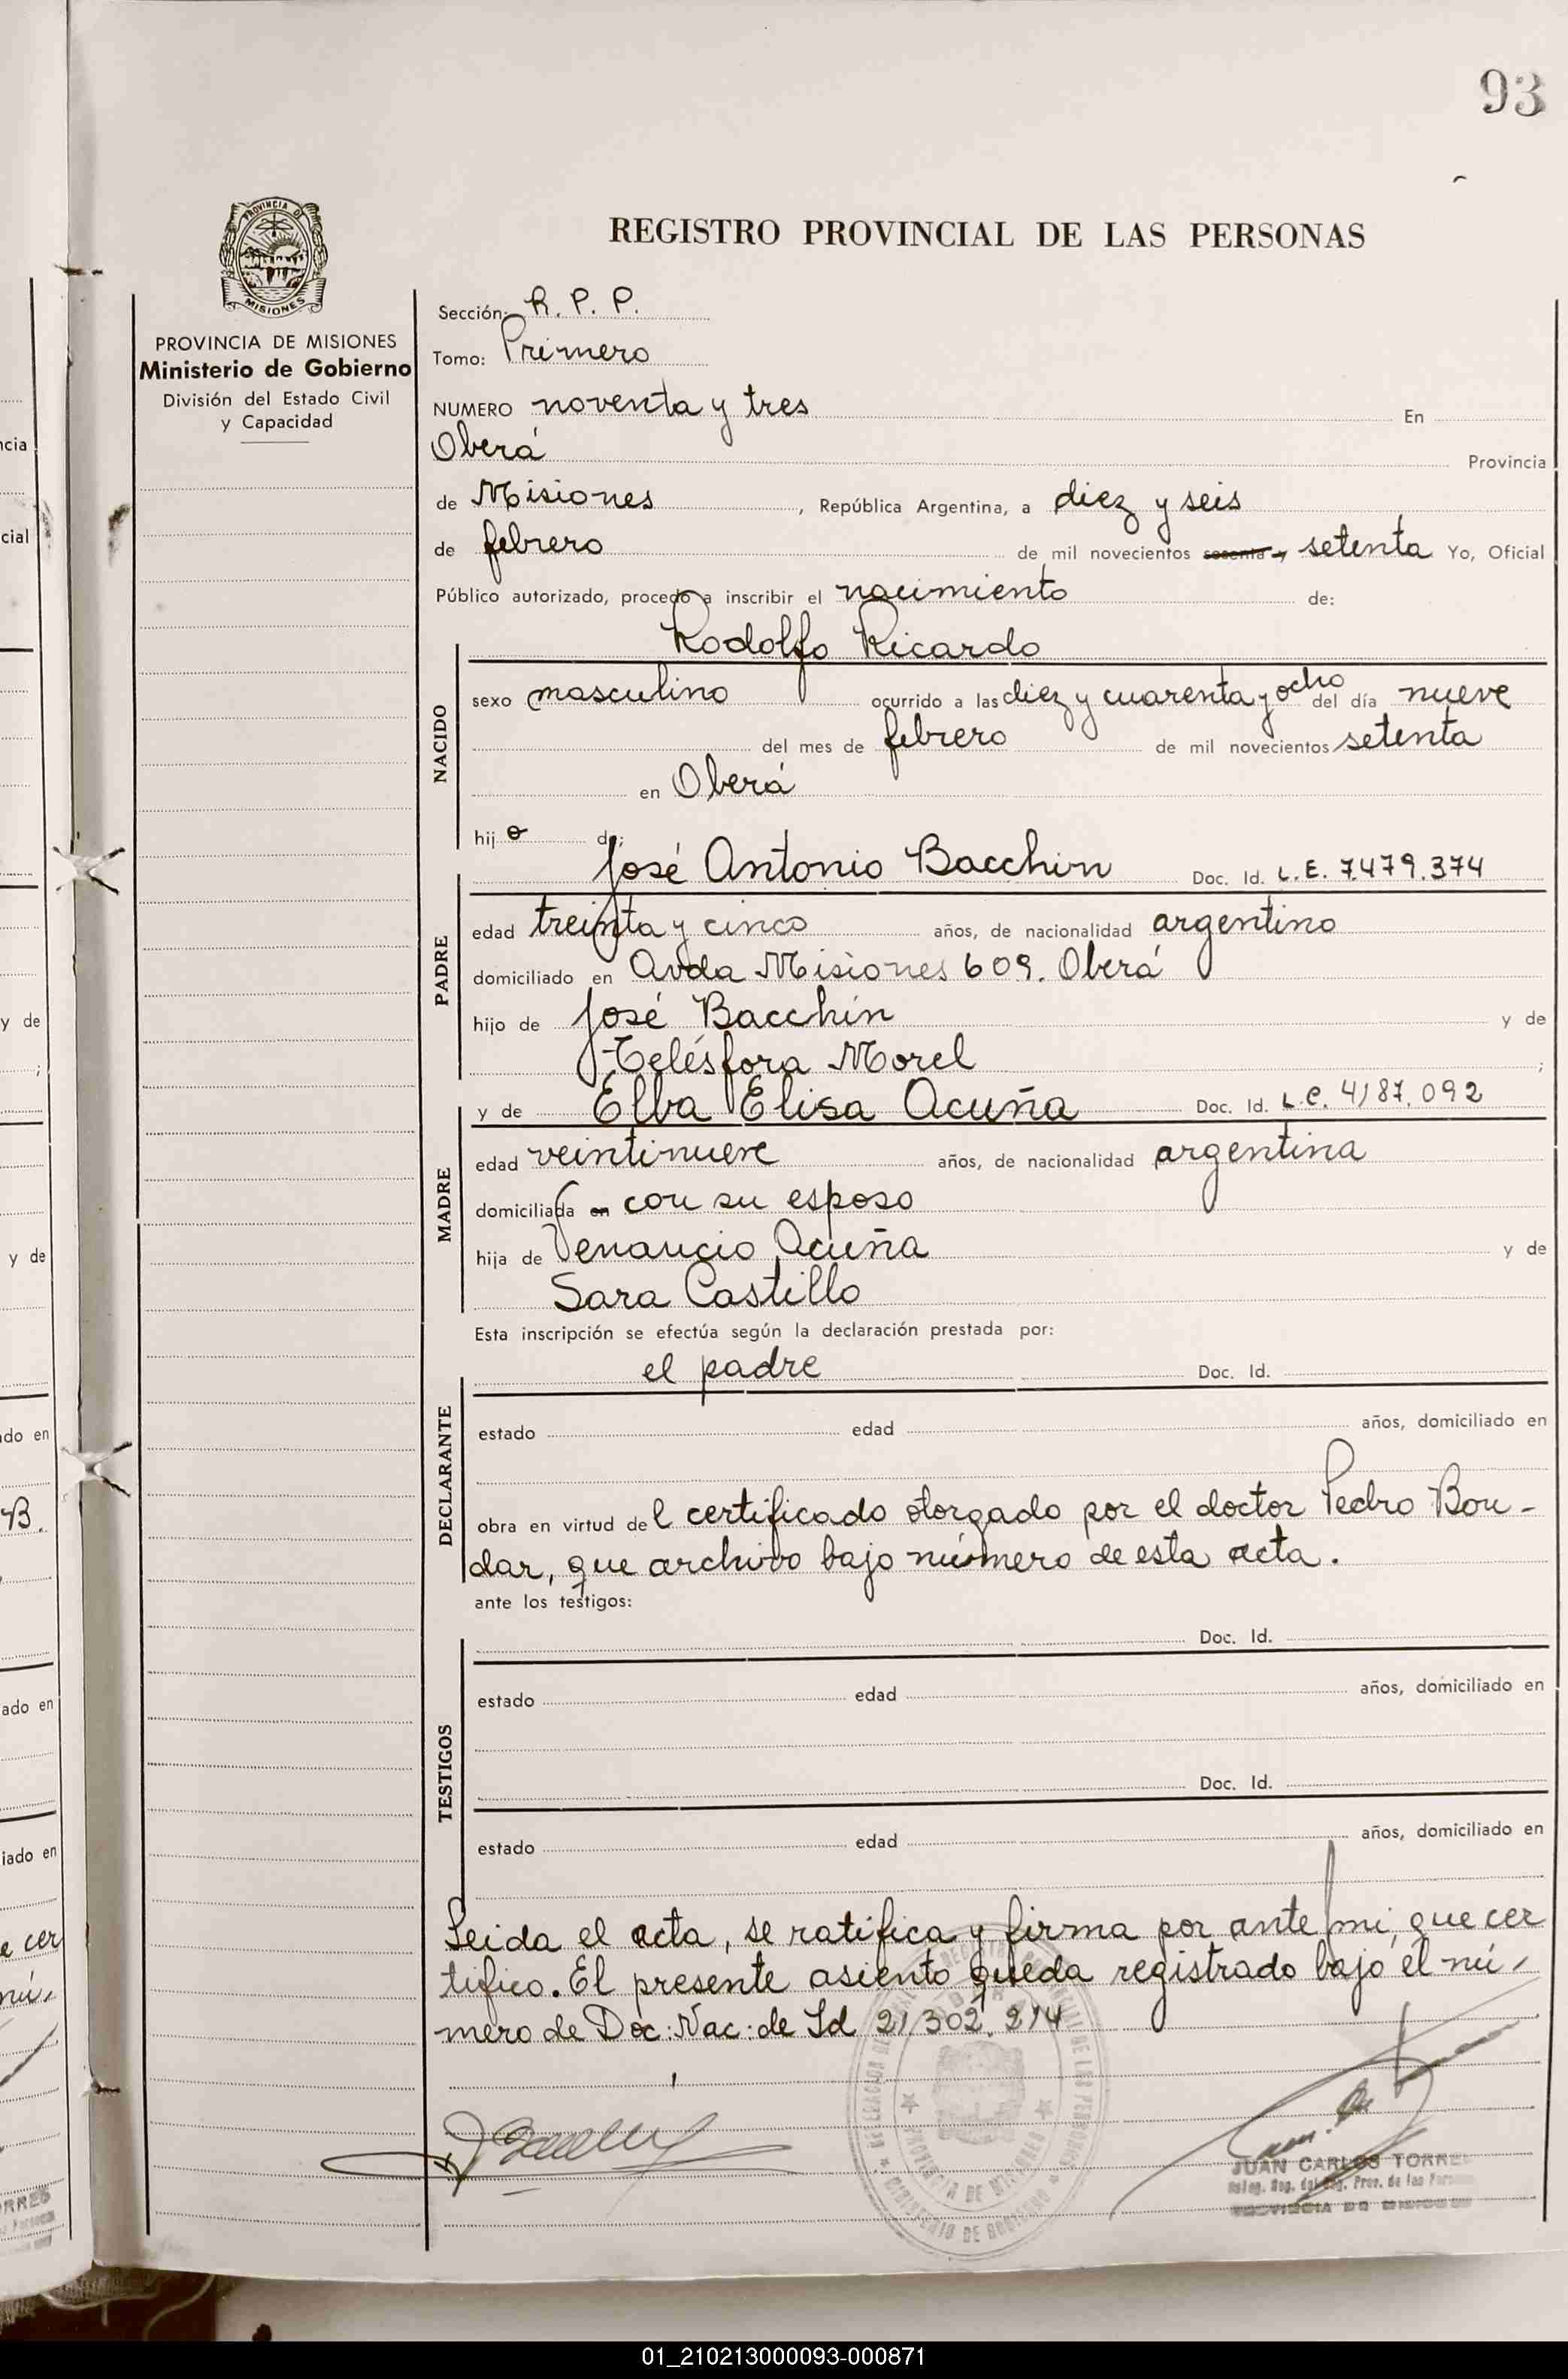 93
REGISTRO PROVINCIAL DE LAS PERSONAS
PROVINCIA DE
MISIONES
PROVINCIA DE MISIONES
Ministerio de Gobierno
División del Estado Civil
y Capacidad
Sección: R. P. P.
Tomo: Primero
NUMERO noventa y tres En
Oberá Provincia
de Misiones, República Argentina, a diez y seis
de febrero de mil novecientos setenta Yo, Oficial
Público autorizado, procedo a inscribir el nacimiento de:
Rodolfo Ricardo
NACIDO
sexo masculino ocurrido a las diez y cuarenta y ocho del día nueve
del mes de febrero de mil novecientos setenta
en Oberá
hijo de:
José Antonio Bacchin Doc. Id. L.E. 7.479.374
PADRE
edad treinta y cinco años, de nacionalidad argentino
domiciliado en Avda Misiones 609. Oberá
hijo de José Bacchin y de
Telésfora Morel ;
y de Elba Elisa Acuña Doc. Id. L.C. 4187.092
MADRE
edad veintinueve años, de nacionalidad argentina
domiciliada en con su esposo
hija de Venancio Acuña y de
Sara Castillo
Esta inscripción se efectúa según la declaración prestada por:
el padre Doc. Id.
DECLARANTE
estado edad años, domiciliado en
obra en virtud del certificado otorgado por el doctor Pedro Bon-
dar, que archivo bajo número de esta acta.
ante los testigos:
Doc. Id.
TESTIGOS
estado edad años, domiciliado en
Doc. Id.
estado edad años, domiciliado en
Leida el acta, se ratifica y firma por ante mi, que cer
tifico. El presente asiento queda registrado bajo el nú-
mero de Doc: Nac: de Id 21302.214
PROVINCIA DE MISIONES
MINISTERIO DE GOBIERNO
JUAN CARLOS TORRES
Prov. de las
PROVINCIA DE MISIONES
ncia
cial
y de
;
y de
ado en
B.
ado en
iado en
e cer
nú-
ORRES
01_210213000093-000871